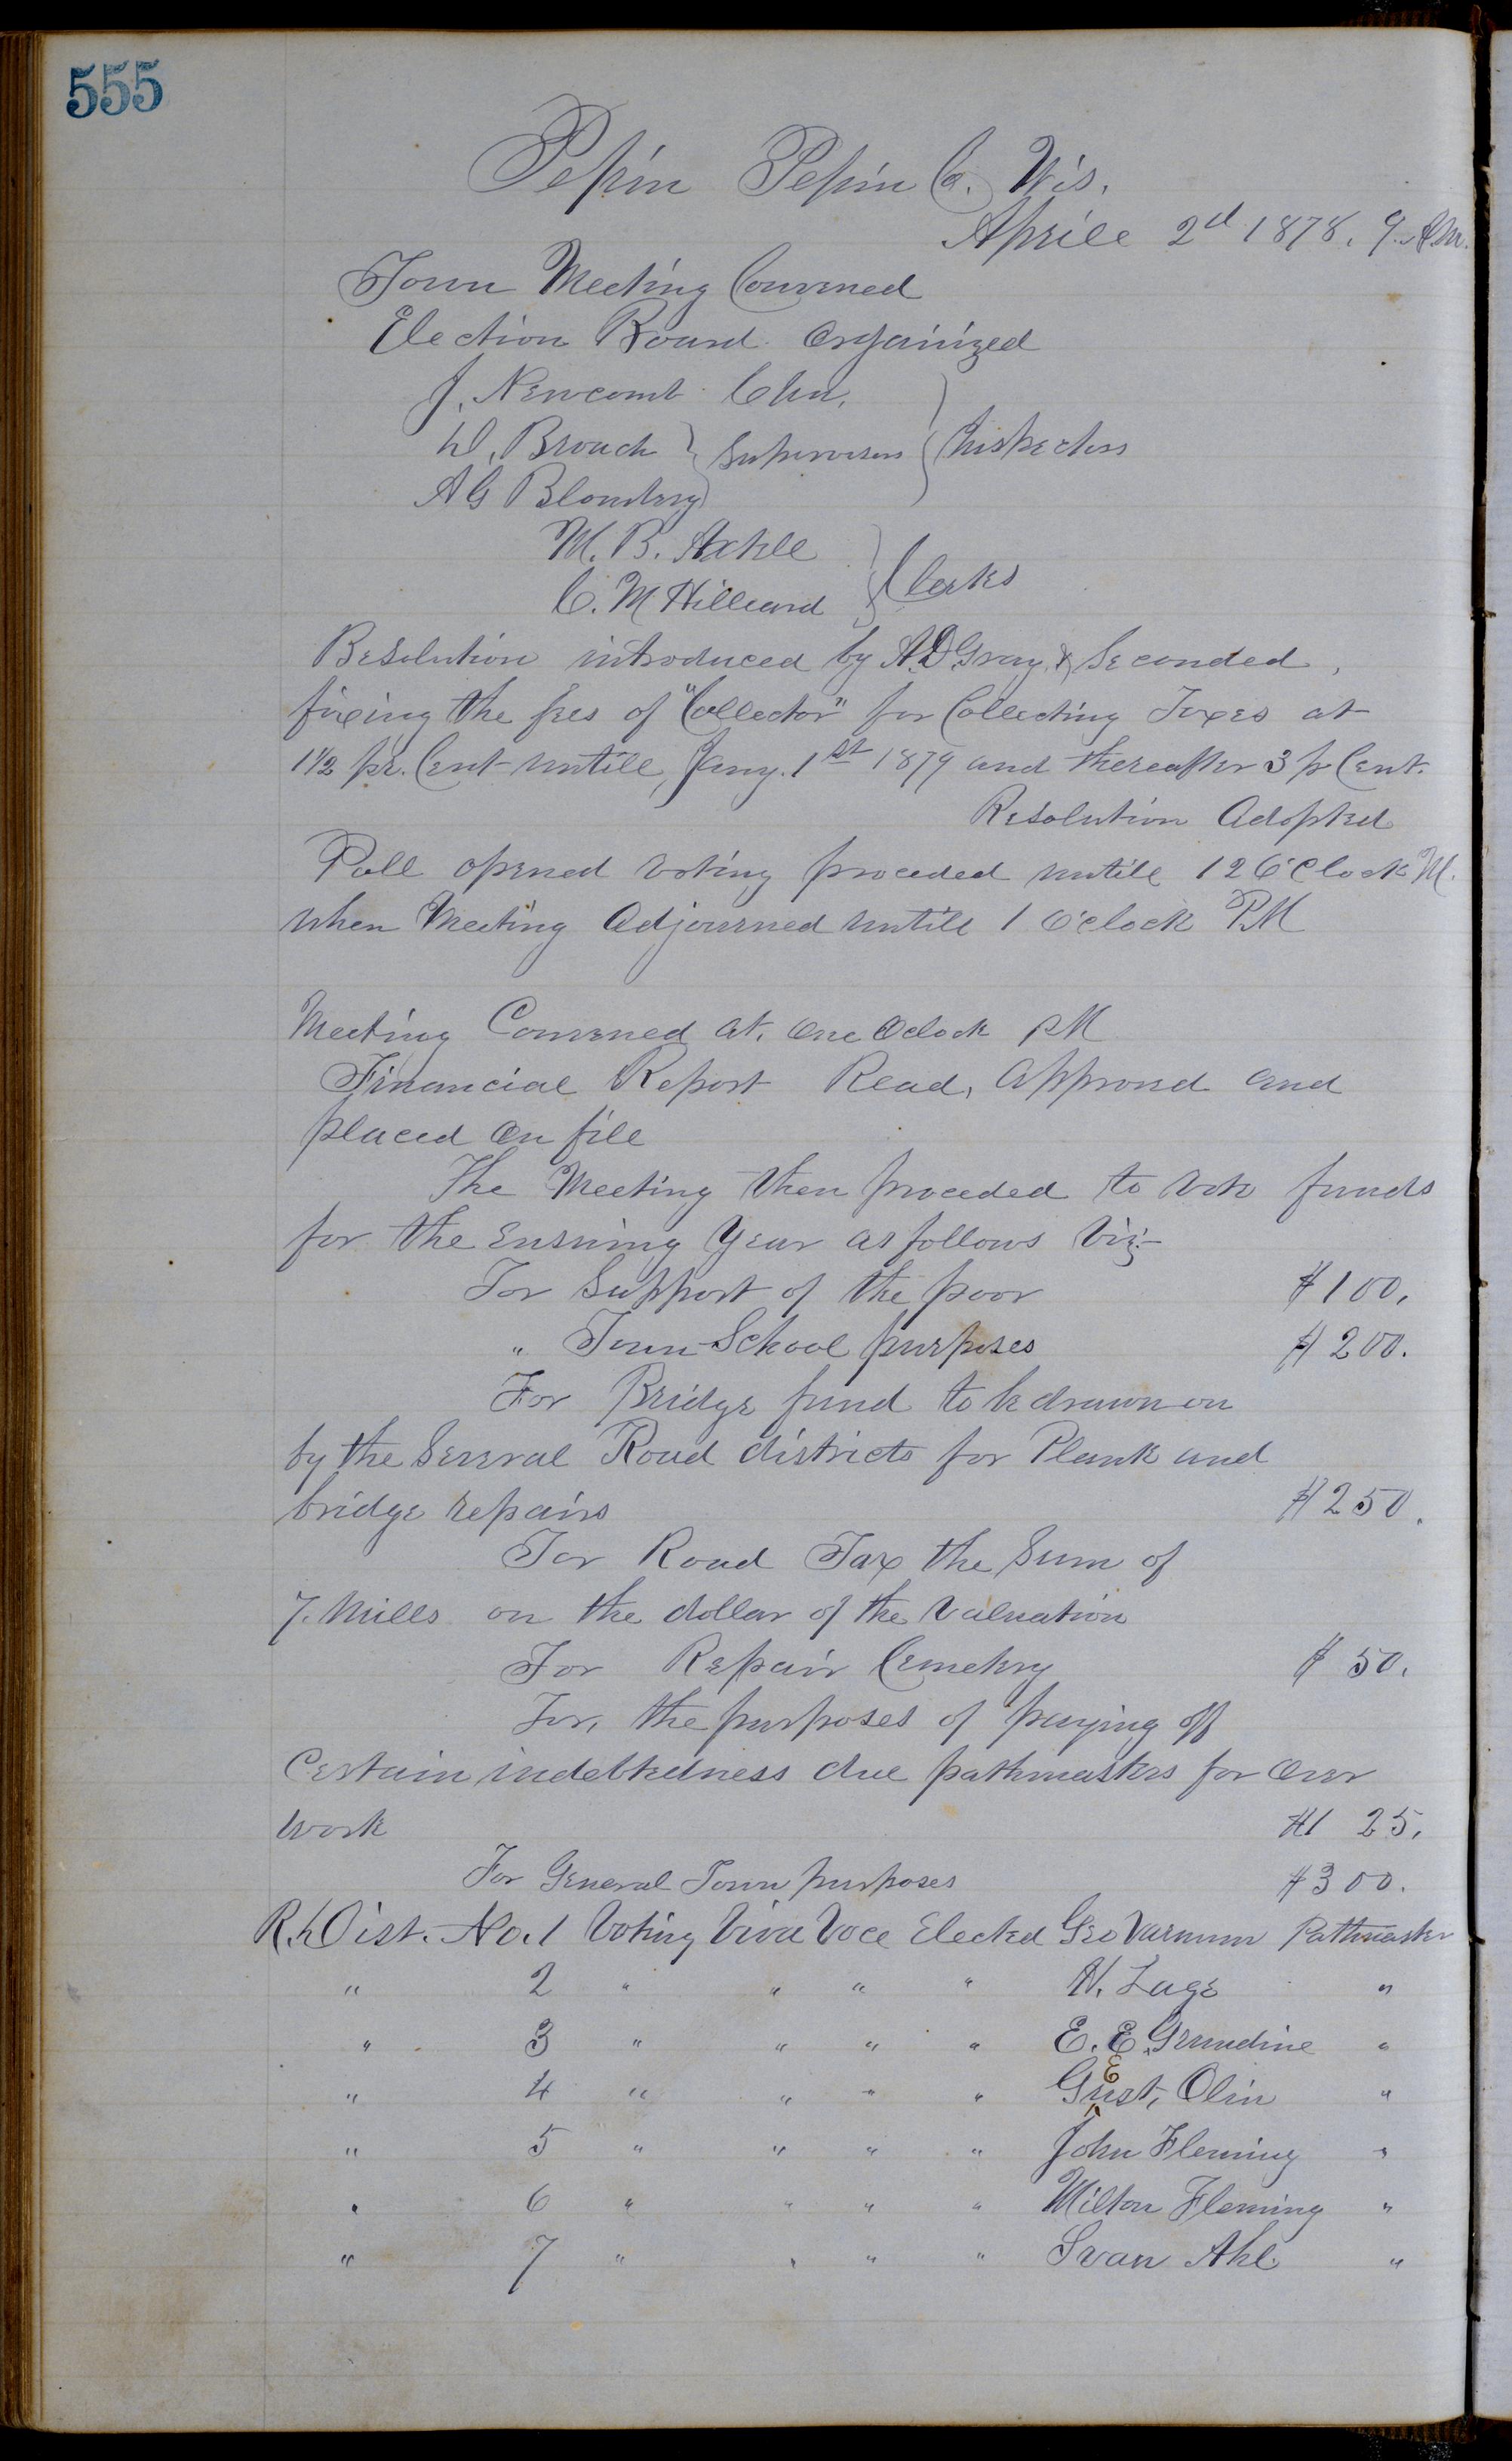 555
Pepin Pepin Co. Wis.
Aprile 2d 1878. 9. A.M.
Town Meeting Convened
Election Board Organized
J. Newcomb Chn.
D. Brouch } Supervisors } Inspectors
A G Blomberg
M. B. Axtell
C. M Hilleard } Clerks
Resolution introduced by A.D. Gray, & Seconded,
fixing the fees of "Collector" for Collecting Taxes at
1 1/2 pr. Cent untill Jany. 1st 1879 and thereafter 3 pr Cent.
Resolution Adopted
Poll opened voting proceded untill 12 O'Clock M.
when Meeting Adjourned untill 1 O'clock P.M
Meeting Convened at, One Oclock P.M
Financial Report Read, Approved and
placed on file
The Meeting then proceded to vote funds
for the Ensuing Year as follows Viz:-
For Support of the poor $100.
" Town School purposes $200.
For Bridge fund to be drawn on
by the Several Road districts for Plank and
bridge repairs $250.
For Road Tax the Sum of
7. Mills on the dollar of the Valuation
For Repair Cemetery $50.
For, the purposes of paying off
Certain indebtedness due pathmasters for Over
work $125.
For General Town purposes $300.
Rd Dist. No. 1 Voting Viva Voce Elected Geo Varnum Pathmaster
" 2 " " " " H. Lage "
" 3 " " " " E. E. Grundine "
" 4 " " " " GEust, Olin "
" 5 " " " " John Fleming "
" 6 " " " " Milton Fleming "
" 7 " " " " Svan Ahl. "